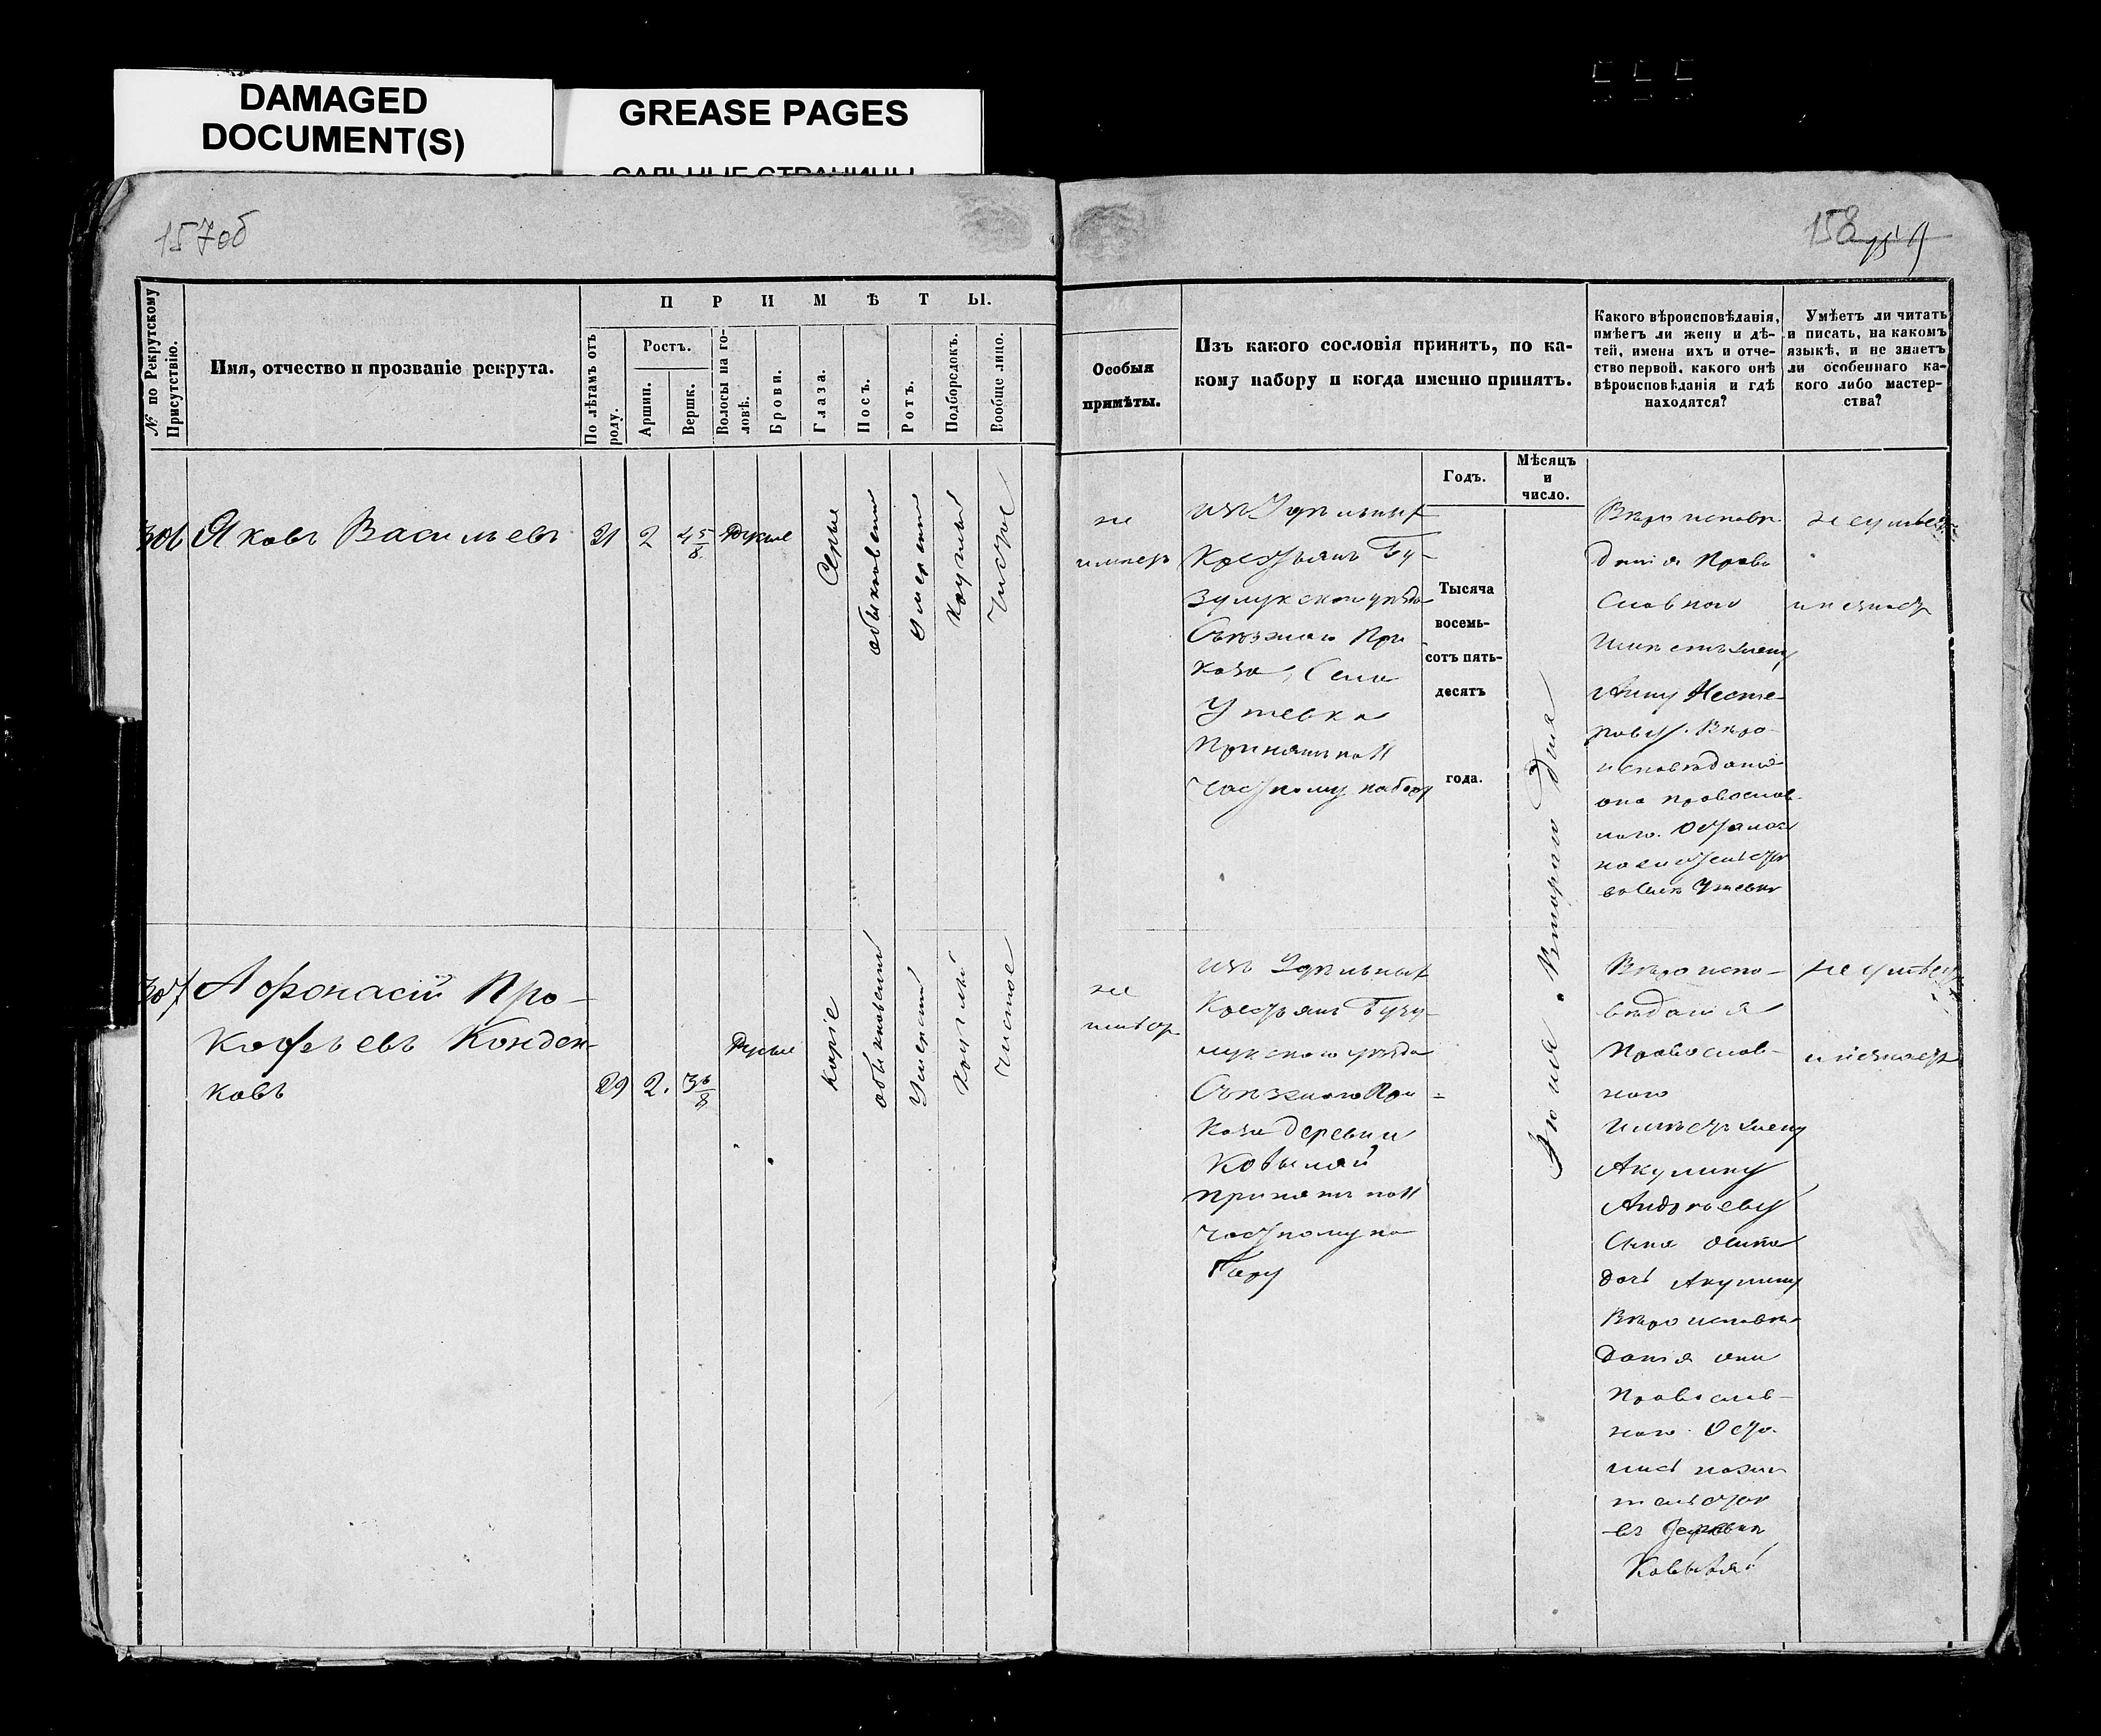 DAMAGED
DOCUMENT(S)
GREASE PAGES
САЛЬНЫЕ СТРАНИЦЫ
157об
158
№ по Рекрутскому
Присутствію.
Имя, отчество и прозваніе рекрута.
ПРИМѢТЫ.
По лѣтамъ отъ
роду.
Ростъ.
Аршин.
Вершк.
Волосы на го-
ловѣ.
Брови.
Глаза.
Носъ.
Ротъ.
Подбородокъ.
Вообще лицо.
Особыя
примѣты.
Изъ какого сословія принятъ, по ка-
кому набору и когда именно принятъ.
Какого вѣроисповѣданія,
имѣетъ ли жену и дѣ-
тей, имена ихъ и отче-
ство первой, какого онѣ
вѣроисповѣданія и гдѣ
находятся?
Умѣетъ ли читать
и писать, на какомъ
языкѣ, и не знаетъ
ли особеннаго ка-
кого либо мастер-
ства?
Годъ.
Мѣсяцъ
и
число.
306
Яковъ Васильевъ
21
2
4 5/8
Русые
Серые
обыкновенный
умеренный
круглый
чистое
не
имеетъ
изъ Удельныхъ
Крестьянъ Бу-
зулукскаго уезда
Съезжаго При
каза, Села
Утевка
Принятъ по 11
частному набору
Тысяча
восемь-
сотъ пять-
десятъ
года.
Июня. Втораго дня
Вѣроисповѣ
данія Право
Славнаго
Имѣетъ жену
Анну Несте-
рову. Вѣро-
исповѣданія
она православ-
наго. Осталась
на жительстве
въ селѣ Утевкѣ
не умѣетъ
и незнаетъ
307
Афонасій Про-
кофьевъ Конден-
ковъ
29
2.
3 6/8
Русые
Каріе
обыкновенный
Умеренный
круглый
чистое
не
имѣетъ
изъ Удельныхъ
Крестьянъ Бузу-
лукскаго уезда
Съезжаго При-
каза деревни
Ковыляй
принятъ по 11
частному на
бору
Вѣроиспо-
вѣданія
Православ-
наго
Имѣетъ жену
Акулину
Андрѣеву
Сына Осипа
дочь Акулину
Вѣроисповѣ-
данія они
Православ-
наго. Оста-
лись на жи
тельстве
въ деревнѣ
Ковыляй
не умѣетъ
и незнаетъ